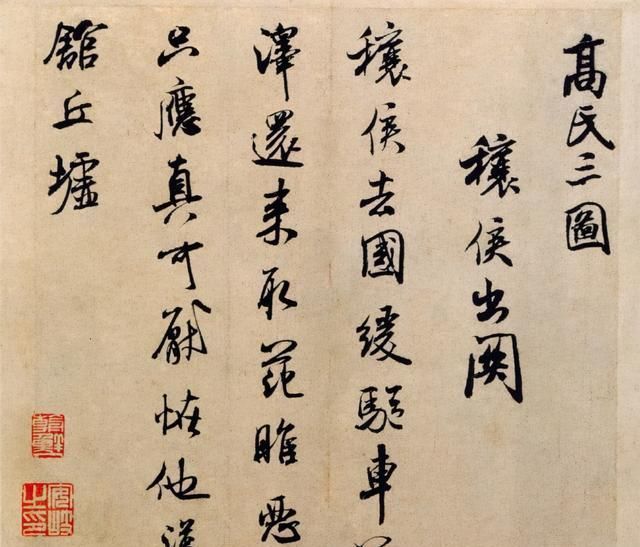 高氏三圖
穰侯出關
穰侯去國緩驅車
澤還来取范睢
只應真可厭
他
舘丘墟